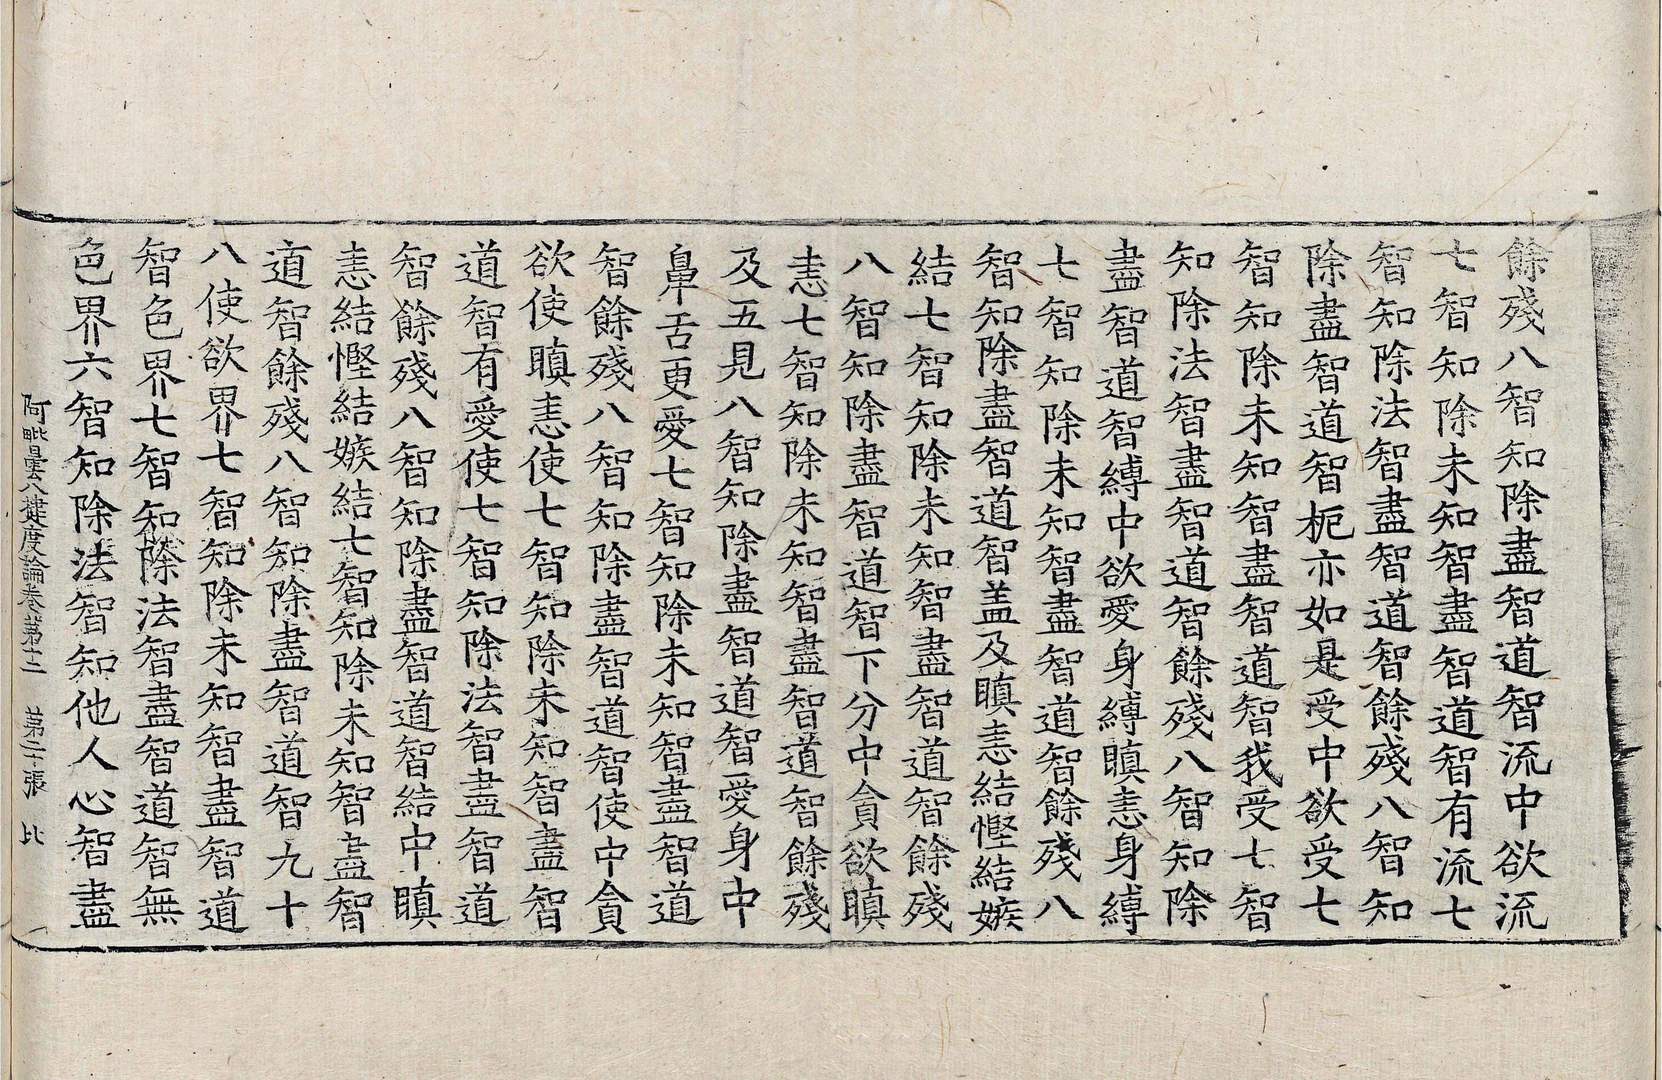 餘殘八智知除盡智道智流中欲流
七智知除未知智盡智道智有流七
智知除法智盡智道智餘殘八智知
除盡智道智枙亦如是受中欲受七
智知除未知智盡智道智我受七智
知除法智盡智道智餘殘八智知除
盡智道智縛中欲愛身縛瞋恚身縛
七智知除未知智盡智道智餘殘八
智知除盡智道智盖及瞋恚結慳結嫉
結七智知除未知智盡智道智餘殘
八智知除盡智道智下分中貪欲瞋
恚七智知除未知智盡智道智餘殘
及五見八智知除盡智道智愛身中
鼻舌更愛七智知除未知智盡智道
智餘殘八智知除盡智道智使中貪
欲使瞋恚使七智知除未知智盡智
道智有愛使七智知除法智盡智道
智餘殘八智知除盡智道智結中瞋
恚結慳結嫉結七智知除未知智盡智
道智餘殘八智知除盡智道智九十
八使欲界七智知除未知智盡智道
智色界七智知除法智盡智道智無
色界六智知除法智知他人心智盡
阿毗曇八揵度論卷第十二 第二十張 比